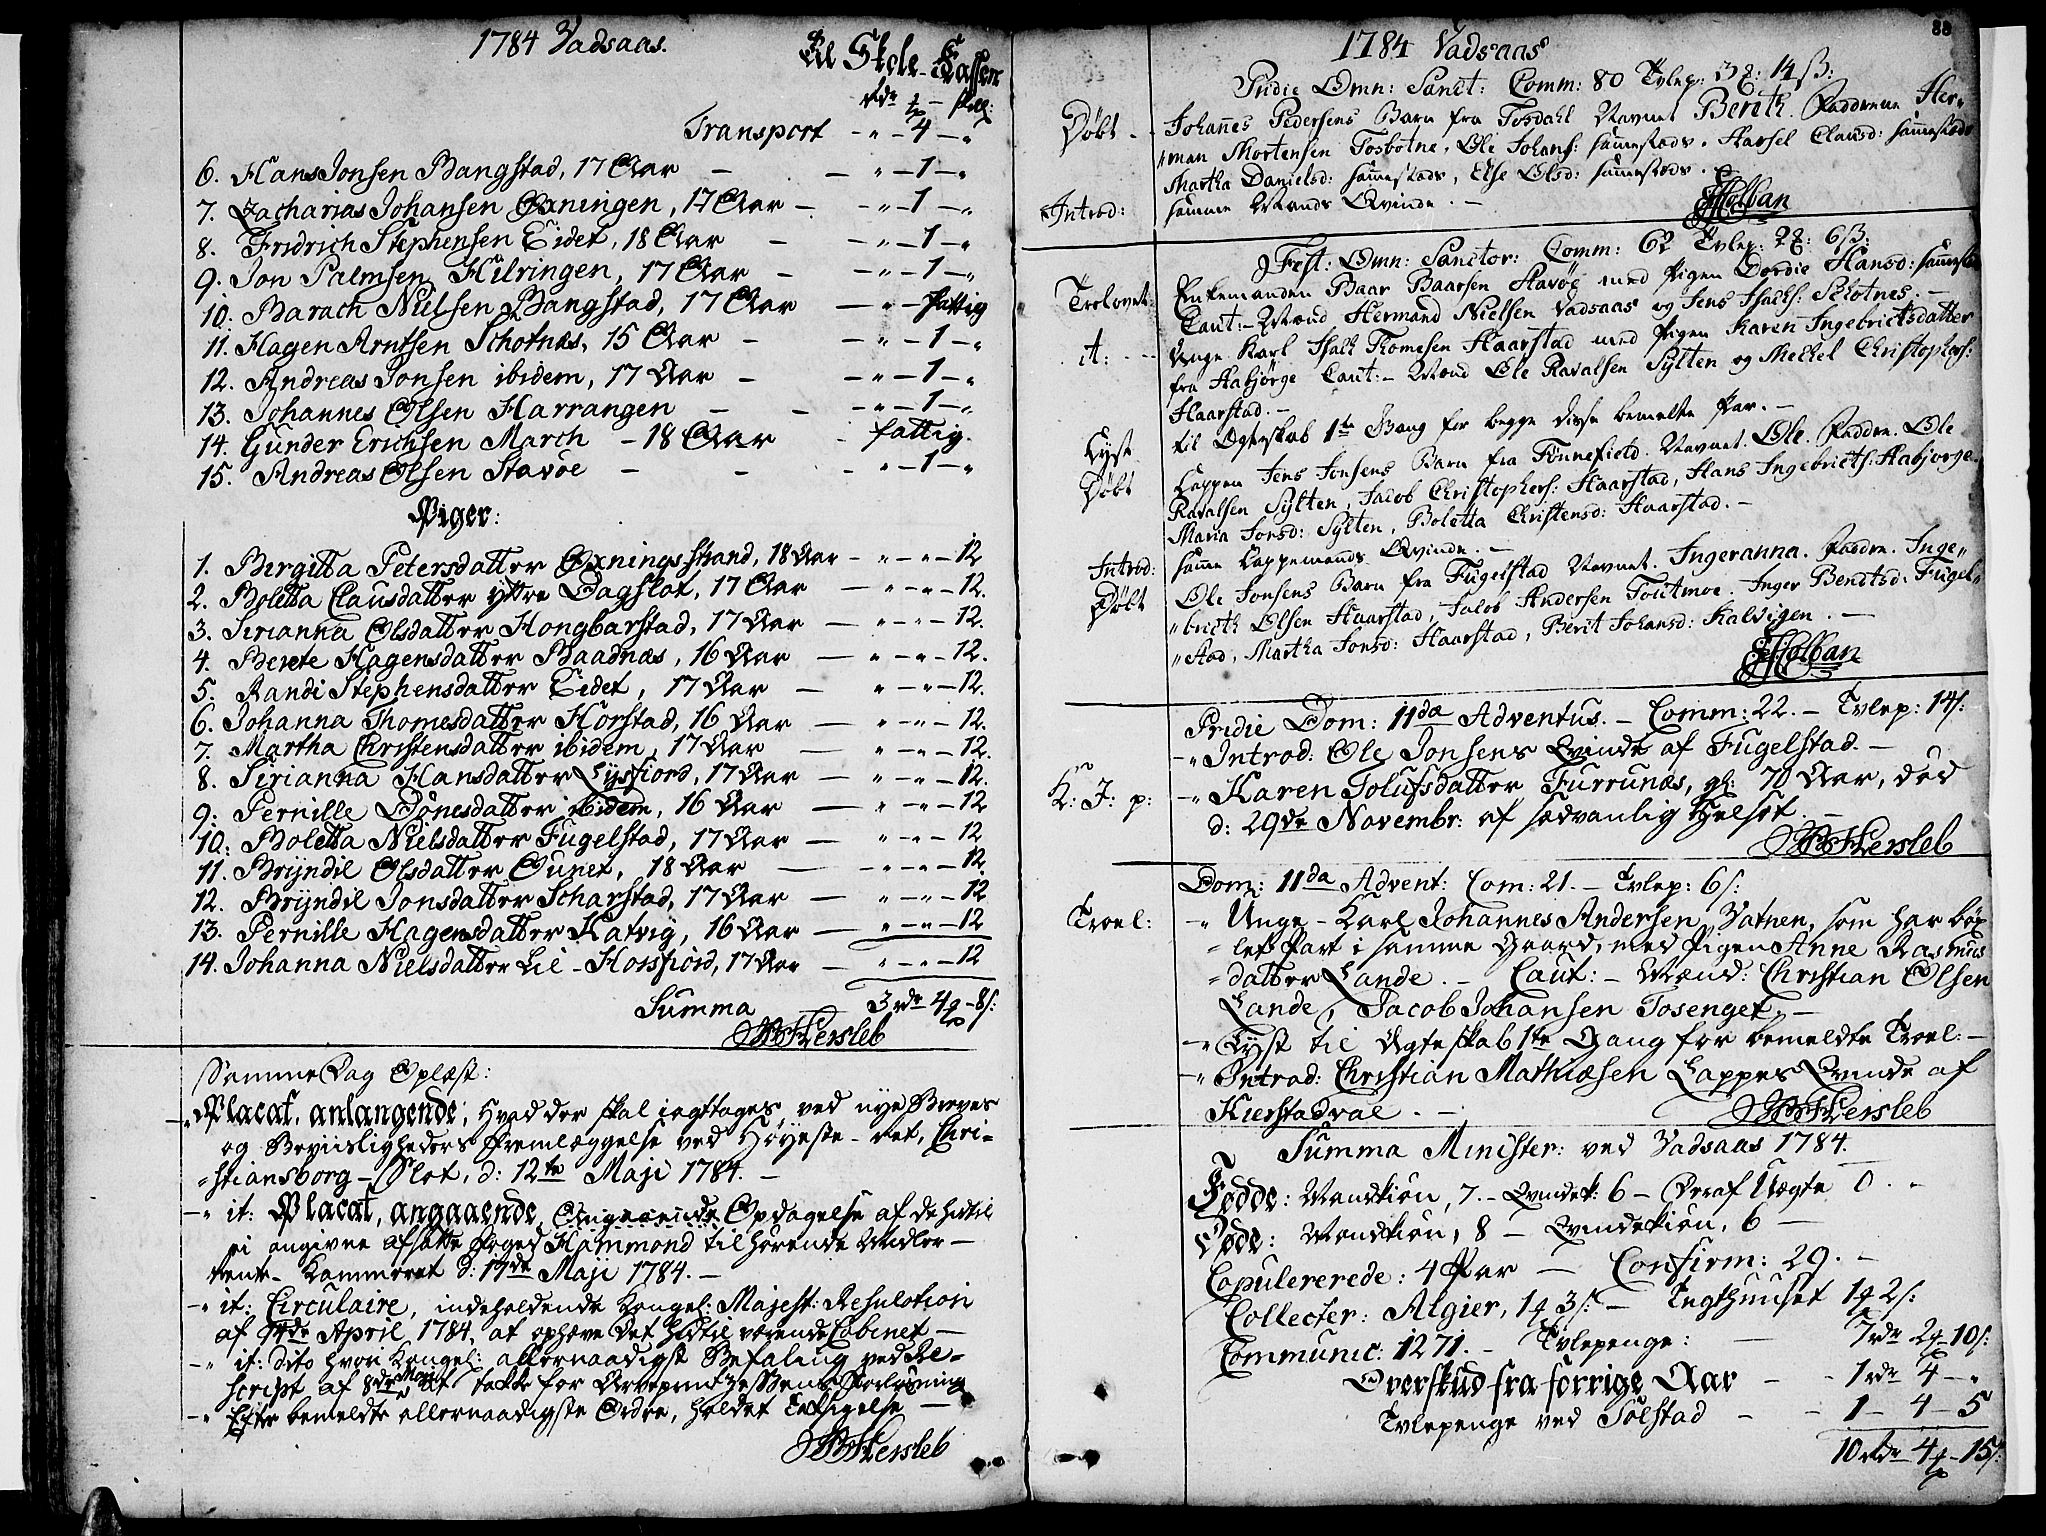 1784 Vadsaas.
Til Skole-Cassen
rdr — skill:
Transport - „ - 4 - „
6. Hans Jonsen Bangstad, 17 Aar — — „ — 1 — „
7. Zacharias Johansen Oxningen, 17 Aar — — „ — 1 — „
8. Fridrich Stephensen Eidet, 18 Aar — — „ — 1 — „
9. Jon Palmsen Hilringen, 17 Aar — — „ — 1 — „
10. Barach Nielsen Bangstad, 17 Aar — „ — fattig
11. Hagen Arntsen Schotnæs, 15 Aar — — „ — 1 — „
12. Andreas Jonsen ibidem, 17 Aar — — „ — 1 — „
13. Johannes Olsen Harrangen — — — „ — 1 — „
14. Gunder Erichsen March — 18 Aar - fattig.
15. Andreas Olsen Stavöe — — — „ — 1 — „
Piger:
1. Birgitta Petersdatter Oxningsstrand, 18 Aar — „ — „ — 12
2. Boletta Clausdatter yttre Dagslot, 17 Aar — „ — „ — 12.
3. Sirianna Olsdatter Hongbarstad, 17 Aar — „ — „ — 12.
4. Berete Hagensdatter Baadnæs, 16 Aar — „ — „ — 12.
5. Randi Stephensdatter Eidet, 17 Aar — „ — „ — 12.
6. Johanna Thomesdatter Horstad, 16 Aar — „ — „ — 12.
7. Martha Christensdatter ibidem, 17 Aar — „ — „ — 12.
8. Sirianna Hansdatter Lysfiord, 17 Aar — „ — „ — 12.
9. Pernille Dönesdatter ibidem, 16 Aar — „ — „ — 12
10. Boletta Nielsdatter Fugelstad, 17 Aar — „ — „ — 12
11. Bryndil Olsdatter Ounet, 18 Aar — „ — „ — 12.
12. Bryndil Jonsdatter Scharstad, 17 Aar — „ — „ — 12
13. Pernille Hagensdatter Katvig, 16 Aar — „ — „ — 12
14. Johanna Nielsdatter Lil-Horsfiord, 17 Aar — „ — „ — 12
Summa 3 rdr 4 - 8 s:
Hersleb
Samme Dag Oplæst:
-„ Placat, anlangende, Hvad der skal iagttages ved nye Breves
og Beviisligheders Fremlæggelse ved Høyeste-ret, Chri-
stiansborg-Slot, d: 12te Maji 1784. —
-„ it: Placat, angaaende, Opdagelse af de hidtil
ei angivne afsatte Foged Hammond tilhørende Midler —
Rente-Kammeret d: 17de Maji 1784. —
-„ it: Circulaire, indeholdende Kongel: Majest: Resulotion
af 14de April 1784, at ophæve det hidtil værende Cabinet —
-„ it: dito hvori Kongel: allernaadigst Befaling ved Re-
script af 8de Maji at takke for Arveprintzessens Forløsning
-„ Efter bemeldte allernaadigste Ordre, holdet Taksigelse —
Hersleb
88
1784 Vadsaas
Pridie Omn: Sanct: Comm: 80 Tvlep: 3 14 ß:
Døbt - Johannes Pedersens Barn fra Tosdahl Navnet Berith. Faddrene Her„
„man Mortensen Tosbotne, Ole Johans: sammesteds. Marsel Clausd: sammesteds
Martha Danielsd: sammesteds, Else Olsd: sammesteds.
Introd: samme Mands Qvinde. — Holban
Fest: Omn: Sanctor: Comm: 62 Tvlep: 2 6 ß:
Trolovet: Enkemanden Baar Baarsen Stavöe med Pigen Dordie Hansd: sammesteds
Caut:- Mænd Hermand Nielsen Vadsaas og Jens Isachs: Schotnes. —
it: Unge Karl Isach Thomesen Haarstad med Pigen Karen Ingebrictsdatter
fra Aabjørge Caut:- Mænd Ole Ravalsen Sylten og Michel Christophers:
Haarstad. —
Lyst til Ægteskab 1te Gang for begge disse bemelte Par. —
Døbt Lappen Jens Jonsens Barn fra Finnefield. Navnet. Ole. Faddre. Ole
Ravalsen Sylten, Jacob Christophers: Haarstad, Hans Ingebricts: Aabjørge.
Maria Jonsd: Sylten, Boletta Christensd: Haarstad. —
Introd: samme Lappemands Qvinde. —
Døbt Ole Jonsens Barn fra Fugelstad Navnet. Ingeranna. Faddre. Inge„
„bricth Olsen Haarstad, Jacob Andersen Toltmoe. Inger Bendtsd: Fugel„
„stad, Martha Jonsd: Haarstad, Berit Johansd: Kalvigen. —
Holban
Pridie Dom: 11da Adventus. — Comm: 22. — Tvlep: 14 s:
-„ Introd: Ole Jonsens Qvinde af Fugelstad. —
K: J: p: -„ Karen Tolufsdatter Furrunæs, gl: 70 Aar, død
d: 29de Novembr: af sædvanlig Helsot. —
Hersleb
Dom: 11da Advent: Com: 21. — Tvlep: 6 s:
Troel: -„ Unge-Karl Johannes Andersen Vatnen, som har bøx
„let Part i samme Gaard, med Pigen Anne Rasmus
„datter Lande. — Caut:- Mænd: Christian Olsen
Lande, Jacob Johansen Tosenget. —
-„ Lyst til Ægteskab 1te Gang for bemeldte Troel: —
-„ Introd: Christian Mathiæsen Lappes Qvinde af
Kierstadval. — Hersleb
Summa Minister: ved Vadsaas 1784.
Fødde: Mandkiøn, 7. — Qvindek: 6 — Deraf Uægte 0. -
Døde: Mandkiøn, 8 — Qvindekiøn, 6 —
Copulererede: 4 Par — Confirm: 29. —
Collecter: Algier, 1 3 s: — Tugthuuset 1 2 s:
Communic: 1271. — Tvlepenge: — 7 rdr 2 - 10 s:
Overskud fra forrige Aar - - 1 rdr 4 - „
Tvlepenge ved Solstad - - 1 - 4 - 5
10 rdr 4 - 15 s: